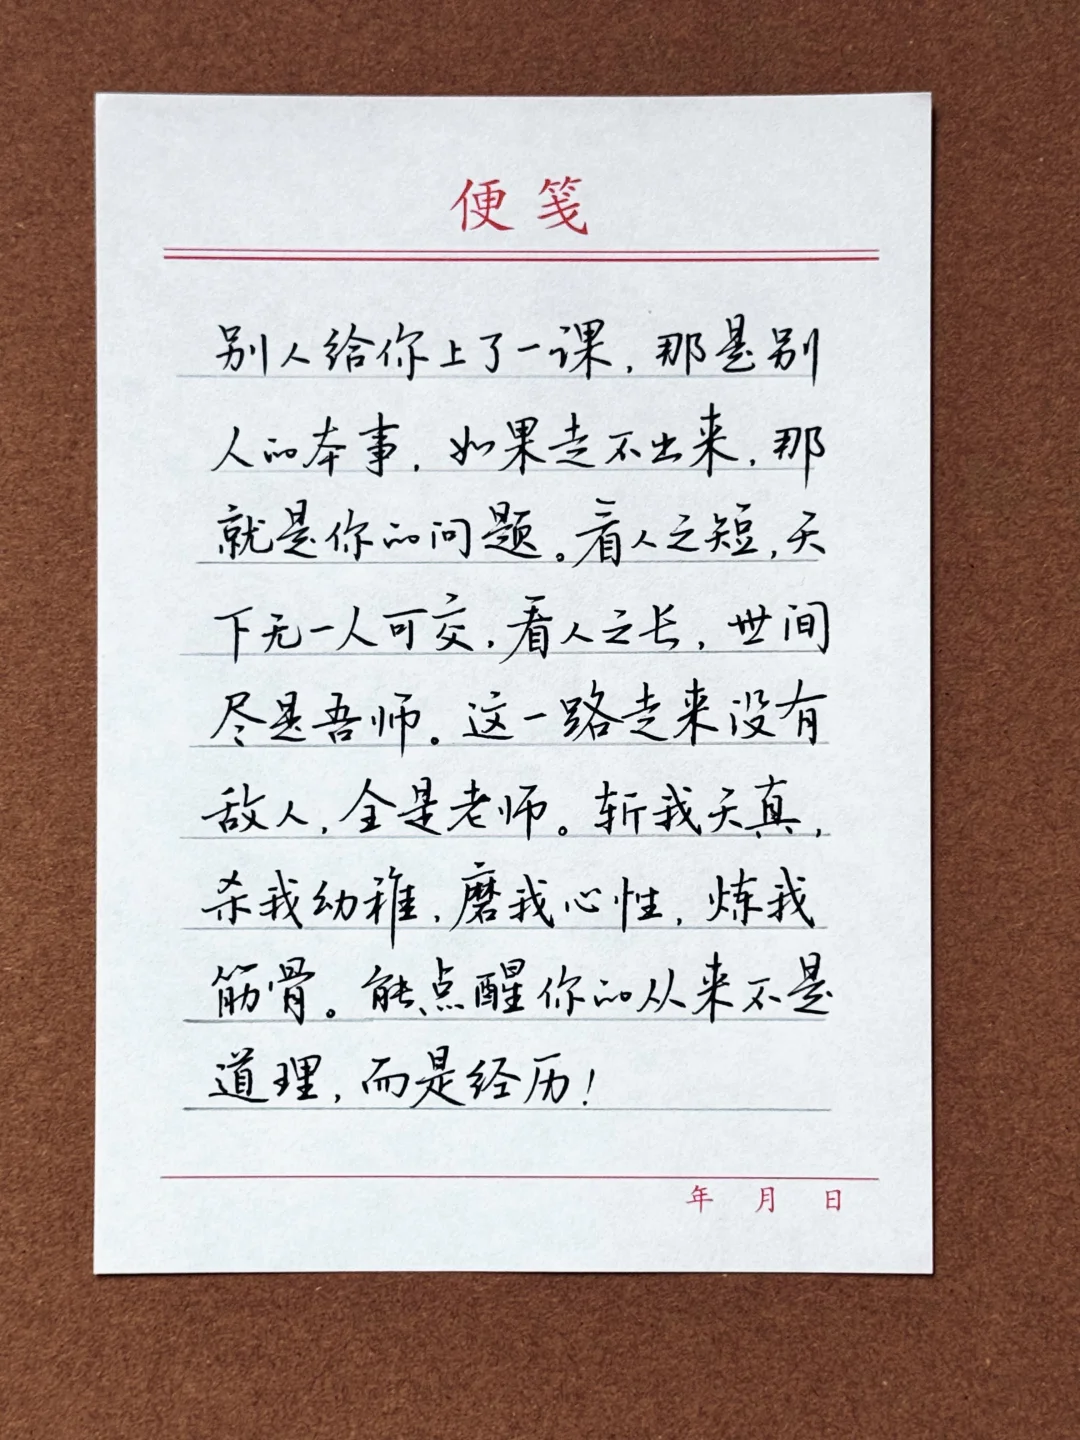 便笺
别人给你上了一课，那是别
人的本事，如果走不出来，那
就是你的问题。看人之短，天
下无一人可交，看人之长，世间
尽是吾师。这一路走来没有
敌人，全是老师。斩我天真，
杀我幼稚，磨我心性，炼我
筋骨。能点醒你的从来不是
道理，而是经历！
年 月 日